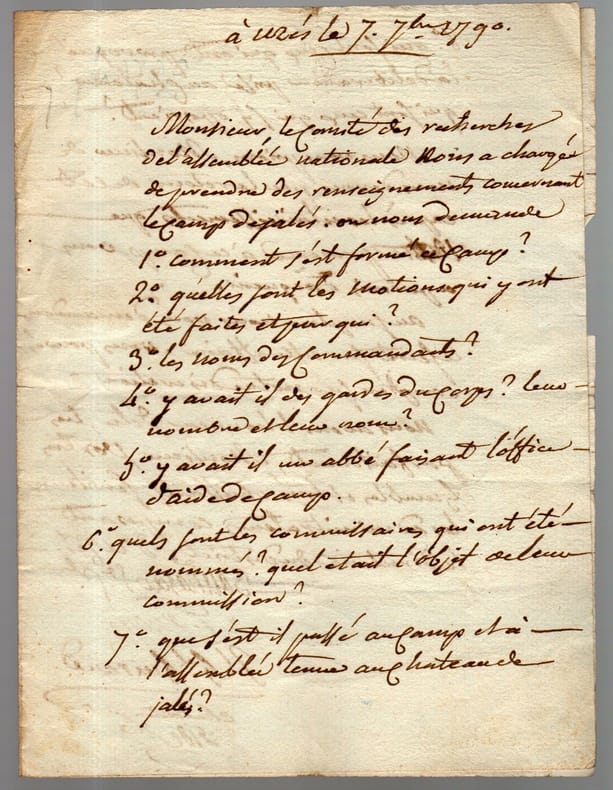 à uzés le 7. 7bre 1790.
Monsieur, le Comité des recherches
de l'assemblée nationale Nous a chargés
de prendre des renseignements concernant
le Camp de jalés. on nous demande
1º. comment s'est formé ce Camp?
2º. quelles sont les motions qui y ont
été faites et par qui?
3º. les noms des Commandants?
4º. y avait il des gardes du Corps? leur
nombre et leur nom?
5º. y avait il un abbé faisant l'office
d'aide de Camp.
6.º quels sont les commissaires qui ont été
nommés? quel etait l'objet de leur
commission?
7º. que s'est il passé au camp et à
l'assemblée tenue au Chateau de
jalés?